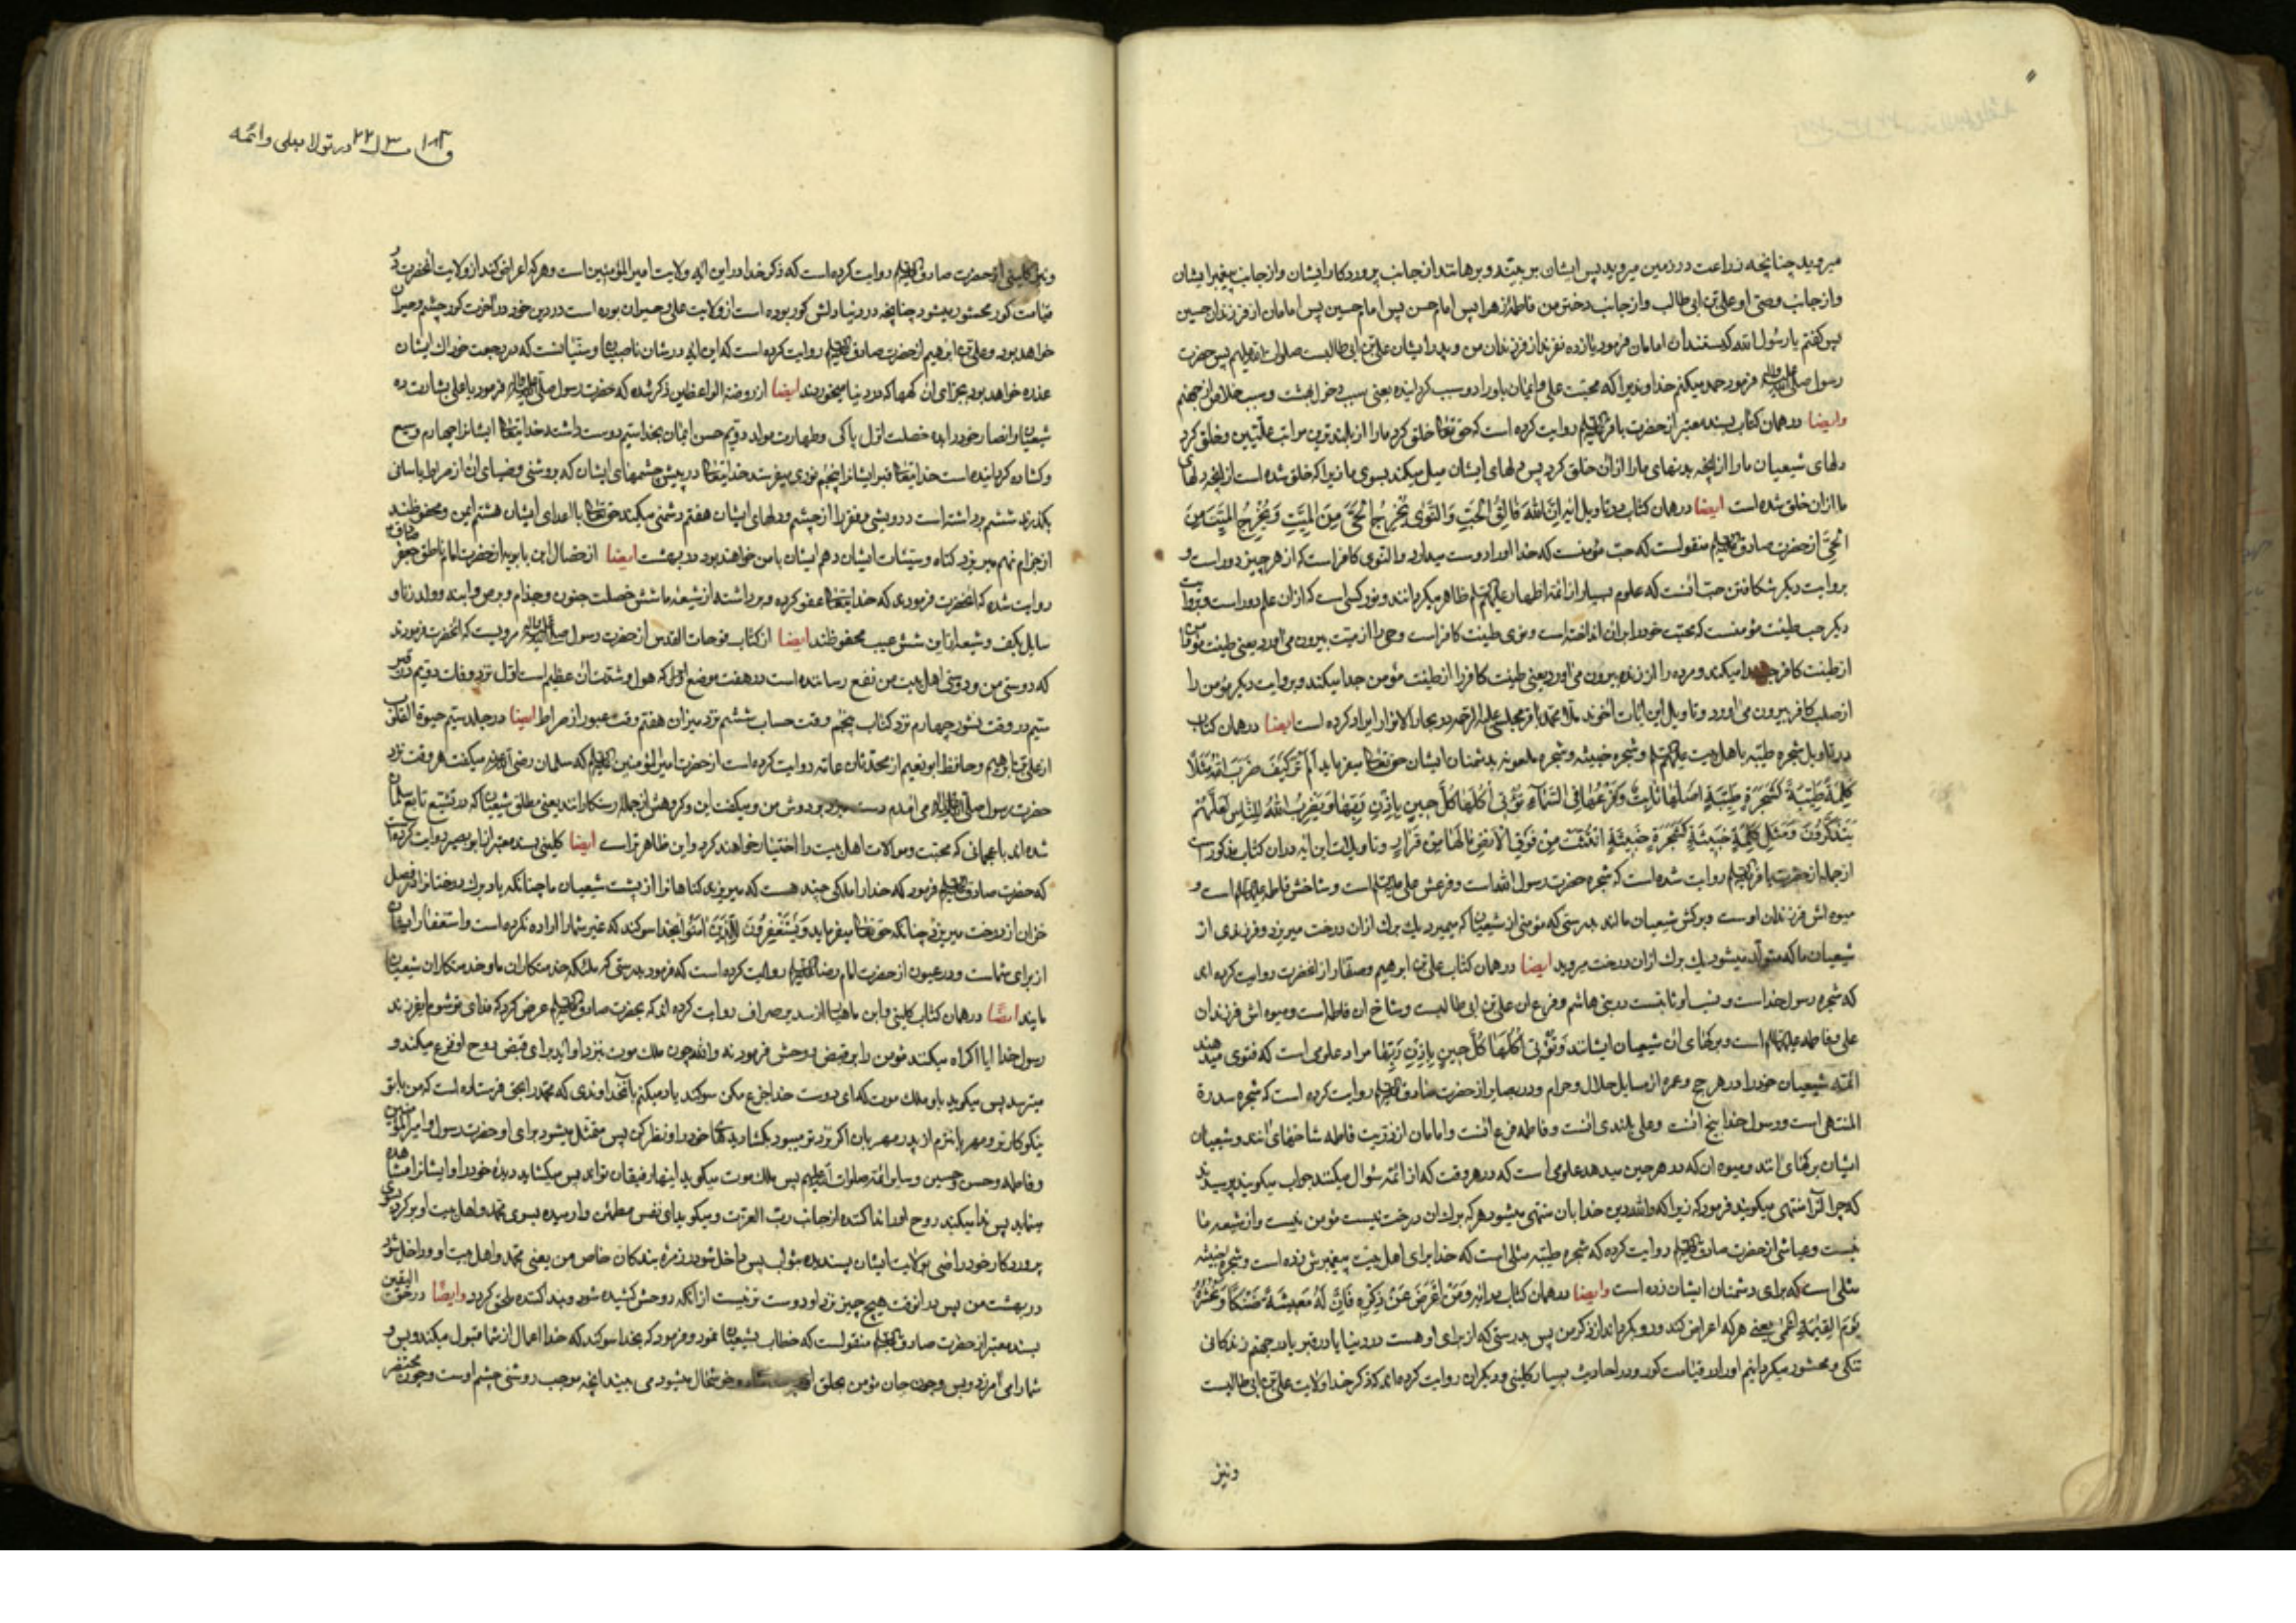 میروید چنانچه زراعت در زمین میروید پس ایشان بر بینه و برهانند از جانب پروردکار ایشان و از جانب پیغمبر ایشان
و از جانب وصی او علی بن ابی طالب و از جانب دختر من فاطمه زهرا پس امام حسن پس امام حسین پس امامان از فرزندان حسین
پس کفتم یا رسول الله کیستند آن امامان فرمود یازده نفرند از فرزندان من و پدر ایشان علی بن ابی طالبست صلوات الله علیهم پس حضرت
رسول صلی الله علیه واله فرمود حمد میکنم خداوندیرا که محبت علی و ایمان باو را دو سبب کردانیده یعنی سبب دخول بهشت و سبب خلاص از جهنم
وایضا در همان کتاب بسند معتبر از حضرت باقر علیه السلام روایت کرده است که حق تعالی خلق کرد ما را از بلندترین مراتب علیین و خلق کرد
دلهای شیعیان ما را از آنچه بدنهای ما را از آن خلق کرد پس دلهای ایشان میل میکند بسوی ما زیرا که خلق شده است از آنچه دلهای
ما از ان خلق شده است ایضا در همان کتاب در تاویل آیه اِنَّ اللهَ فَالِقُ الْحَبِّ وَالنَّوٰی یُخْرِجُ الْحَیَّ مِنَ الْمَیِّتِ وَیُخْرِجُ الْمَیِّتَ مِنَ
الْحَیِّ از حضرت صادق علیه السلام منقولست که حب مؤمنست که خدا او را دوست میدارد و النوی کافر است که از هر چیز دور است و
بروایت دیکر شکافتن حب آنست که علوم بسیار از ائمه اطهار علیهم السلام ظاهر میکردانند و نوی کسی است که از ان علم دور است و بروایت
دیکر حب طینت مؤمنست که محبت خود را بر ان انداخته است و نوی طینت کافر است و حی را از میت بیرون می اورد یعنی طینت مؤمن را
از طینت کافر جدا میکند و مرده را از زنده بیرون می اورد یعنی طینت کافر را از طینت مؤمن جدا میکند و بروایت دیکر مؤمن را
از صلب کافر بیرون می اورد و تاویل این ایات آخوند ملا محمد باقر مجلسی علیه الرحمه در بحار الانوار ایراد کرده است ایضا در همان کتاب
در تاویل شجره طیبه باهل بیت علیهم السلام و شجره خبیثه و شجره ملعونه بدشمنان ایشان حق تعالی میفرماید اَلَمْ تَرَ کَیْفَ ضَرَبَ اللهُ مَثَلًا
کَلِمَةً طَیِّبَةً کَشَجَرَةٍ طَیِّبَةٍ اَصْلُهَا ثَابِتٌ وَفَرْعُهَا فِی السَّمَآءِ تُؤْتِی اُکُلَهَا کُلَّ حِینٍ بِاِذْنِ رَبِّهَا وَیَضْرِبُ اللهُ لِلنَّاسِ لَعَلَّهُمْ
یَتَذَکَّرُونَ وَمَثَلِ کَلِمَةٍ خَبِیثَةٍ کَشَجَرَةٍ خَبِیثَةٍ اجْتُثَّتْ مِنْ فَوْقِ الْاَرْضِ مَا لَهَا مِنْ قَرَارٍ و تاویلات این آیه در ان کتاب مذکور است
از جمله از حضرت باقر علیه السلام روایت شده است که شجره حضرت رسول الله است و فرعش علی علیه السلام است و شاخش فاطمه علیها السلام است و
میوه اش فرزندان اوست و برکش شیعیان ما اند بدرستی که مؤمنی از شیعیان که میمیرد یك برك ازان درخت میریزد و فرزندی از
شیعیان ما که متولد میشود یك برك ازان درخت میروید ایضا در همان کتاب علی بن ابرهیم و صفار از انحضرت روایت کرده اند
که شجره رسول خداست و نسب او ثابتست در بنی هاشم و فرع ان علی بن ابی طالبست و شاخ ان فاطمه است و میوه اش فرزندان
علی و فاطمه علیهما السلام است و برکهای ان شیعیان ایشانند وَتُؤْتِی اُکُلَهَا کُلَّ حِینٍ بِاِذْنِ رَبِّهَا مراد علومی است که فتوی میدهند
ائمه شیعیان خود را در هر حج و عمره از مسایل حلال و حرام و در بصایر از حضرت صادق علیه السلام روایت کرده است که شجره سدرة
المنتهی است و رسول خدا بیخ آنست و علی بلندی آنست و فاطمه فرع آنست و امامان از ذریت فاطمه شاخهای آنند و شیعیان
ایشان برکهای آنند و میوه ان که در هر حین میدهد علومی است که در هر وقت که از ائمه سؤال میکنند جواب میکویند پرسیدند
که چرا آنرا منتهی میکویند فرمود که زیرا که والله دین خدا بان منتهی میشود هر که برك ان درخت نیست مؤمن نیست و از شیعه ما
نیست و عیاشی از حضرت صادق علیه السلام روایت کرده که شجره طیبه مثلی است که خدا برای اهل بیت پیغمبرش زده است و شجره خبیثه
مثلی است که برای دشمنان ایشان زده است وایضا در همان کتاب در آیه وَمَنْ اَعْرَضَ عَنْ ذِکْرِی فَاِنَّ لَهُ مَعِیشَةً ضَنْکًا وَنَحْشُرُهُ
یَوْمَ الْقِیٰمَةِ اَعْمٰی یعنی هر که اعراض کند و رو بکرداند از ذکر من پس بدرستی که از برای او هست در دنیا یا در قبر یا در جهنم زندکانی
تنکی و محشور میکردانیم او را در قیامت کور و در احادیث بسیار کلینی و دیکران روایت کرده اند که ذکر خدا ولایت علی بن ابی طالبست
ونیز
در تولا بعلی و ائمه
ونیز کلینی از حضرت صادق علیه السلام روایت کرده است که ذکر خدا در این آیه ولایت امیر المؤمنین است و هر که اعراض کند از ولایت آنحضرت در
قیامت کور محشور میشود چنانچه در دنیا دلش کور بوده است از ولایت علی و حیران بوده است در دین خود در آخرت کور چشم و حیران
خواهد بود و علی بن ابرهیم از حضرت صادق علیه السلام روایت کرده است که این آیه در شان ناصبیان و سنیانست که در رجعت خوراك ایشان
عذره خواهد بود بجزای ان کهها که در دنیا میخوردند ایضا از روضة الواعظین ذکر شده که حضرت رسول صلی الله علیه واله فرمود یا علی بشارت ده
شیعیان و انصار خود را بده خصلت اول پاکی و طهارت مولد دویم حسن ایمان بخدا سیم دوست داشتن خدایتعالی ایشانرا چهارم وسیع
و کشاده کردانیده است خدایتعالی قبر ایشانرا پنجم نوری میفرستد خدایتعالی در پیش چشمهای ایشان که بروشنی و ضیای ان از صراط باسانی
بکذرند ششم برداشته است درویشی و فقر را از چشم و دلهای ایشان هفتم دشمنی میکند حق تعالی با اعدای ایشان هشتم ایمن و محفوظند
از جزام نهم میریزد کناه و سیئات ایشان دهم ایشان با من خواهند بود در بهشت ایضا از خصال ابن بابویه از حضرت امام ناطق جعفر صادق
روایت شده که آنحضرت فرمودی که خدایتعالی عفو کرده و برداشته از شیعهٔ ما شش خصلت جنون و جذام و برص و ابنه و ولد زنا و
سایل بکف و شیعه از این شش عیب محفوظند ایضا از کتاب فوحات القدس از حضرت رسول صلی الله علیه واله مرویست که آنحضرت فرمودند
که دوستی من و دوستی اهل بیت من نفع رساننده است در هفت موضع که هول و شدت ان عظیم است اول نزد وفات دویم در قبر
سیم در وقت نشور چهارم نزد کتاب پنجم وقت حساب ششم نزد میزان هفتم وقت عبور از صراط ایضا در جلد سیم حیوة القلوب
از علی بن ابرهیم و حافظ ابو نعیم از محدثان عامه روایت کرده است از حضرت امیر المؤمنین علیه السلام که سلمان رضی الله عنه میکفت هر وقت نزد
حضرت رسول صلی الله علیه واله می امدم دست میزد بر دوش من و میکفت این و کروهش از جمله رستکارانند یعنی مطلق شیعیان که در تشیع تابع سلمان
شده اند یا عجمانی که محبت و موالات اهل بیت را اختیار خواهند کرد و این ظاهرتر است ایضا کلینی بسند معتبر از ابو بصیر روایت کرده است
که حضرت صادق علیه السلام فرمود که خدا را ملکی چند هست که میریزند کناهانرا از پشت شیعیان ما چنانکه باد برك درختانرا در فصل
خزان از درخت میریزد چنانکه حق تعالی میفرماید وَیَسْتَغْفِرُونَ لِلَّذِینَ اٰمَنُوا بخدا سوکند که غیر شما را اراده نکرده است و استغفار ایشان
از برای شماست و در عیون از حضرت امام رضا علیه السلام روایت کرده است که فرمود بدرستی که ملائکه خدمتکاران ما و خدمتکاران شیعیان
مایند ایضًا در همان کتاب کلینی و ابن ماهیار از سدیر صراف روایت کرده اند که بحضرت صادق علیه السلام عرض کرد که فدای تو شوم ای فرزند
رسول خدا ایا اکراه میکند مؤمن را بر قبض روحش فرمود نه والله چون ملك موت بنزد او آید برای قبض روح او فزع میکند و
میترسد پس میکوید باو ملك موت که ای دوست خدا جزع مکن سوکند یاد میکنم بانخداوندی که محمد را بحق فرستاده است که من با تو
نیکوکارتر و مهربانترم از پدر مهربان اکر نزد تو میبود بکشا دیدهای خود را و نظر کن پس متمثل میشود برای او حضرت رسول و امیر المؤمنین
و فاطمه و حسن و حسین و سایر ائمه صلوات الله علیهم پس ملك موت میکوید اینها رفیقان تواند پس میکشاید دیدهٔ خود را و ایشانرا مشاهده
مینماید پس ندا میکند روح او را ندا کننده از جانب رب العزت و میکوید ای نفس مطمئن وا رسیده بسوی محمد و اهل بیت او برکرد بسوی
پروردکار خود راضی بولایت ایشان پسندیده بثواب پس داخل شو در زمرهٔ بندکان خاص من یعنی محمد و اهل بیت او و داخل شو
در بهشت من پس در انوقت هیچ چیز نزد او دوست تر نیست از آنکه روحش کشیده شود و بندا کننده ملحق کردد وایضًا در حق الیقین
بسند معتبر از حضرت صادق علیه السلام منقولست که خطاب بشیعیان نمود و فرمود که بخدا سوکند که خدا اعمال از شما قبول میکند و بس و
شما را می آمرزد و بس و چون جان مؤمن بحلق خوشحال میشود می بیند آنچه موجب روشنی چشم اوست و چون محتضر